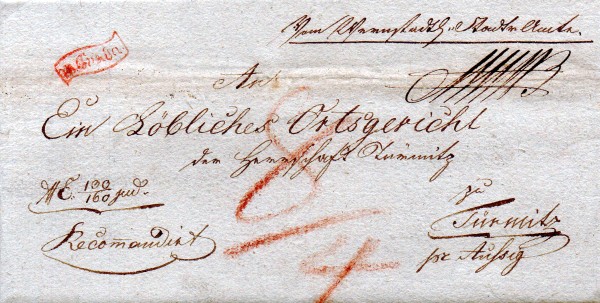 Vom Wernstadtl. Stadt Amte.
An
Ein Löbliches Ortsgericht
der Herrschaft Türmitz
NE. 130/160 jud.
Recomandirt
zu
Türmitz
pr Aussig
8
4